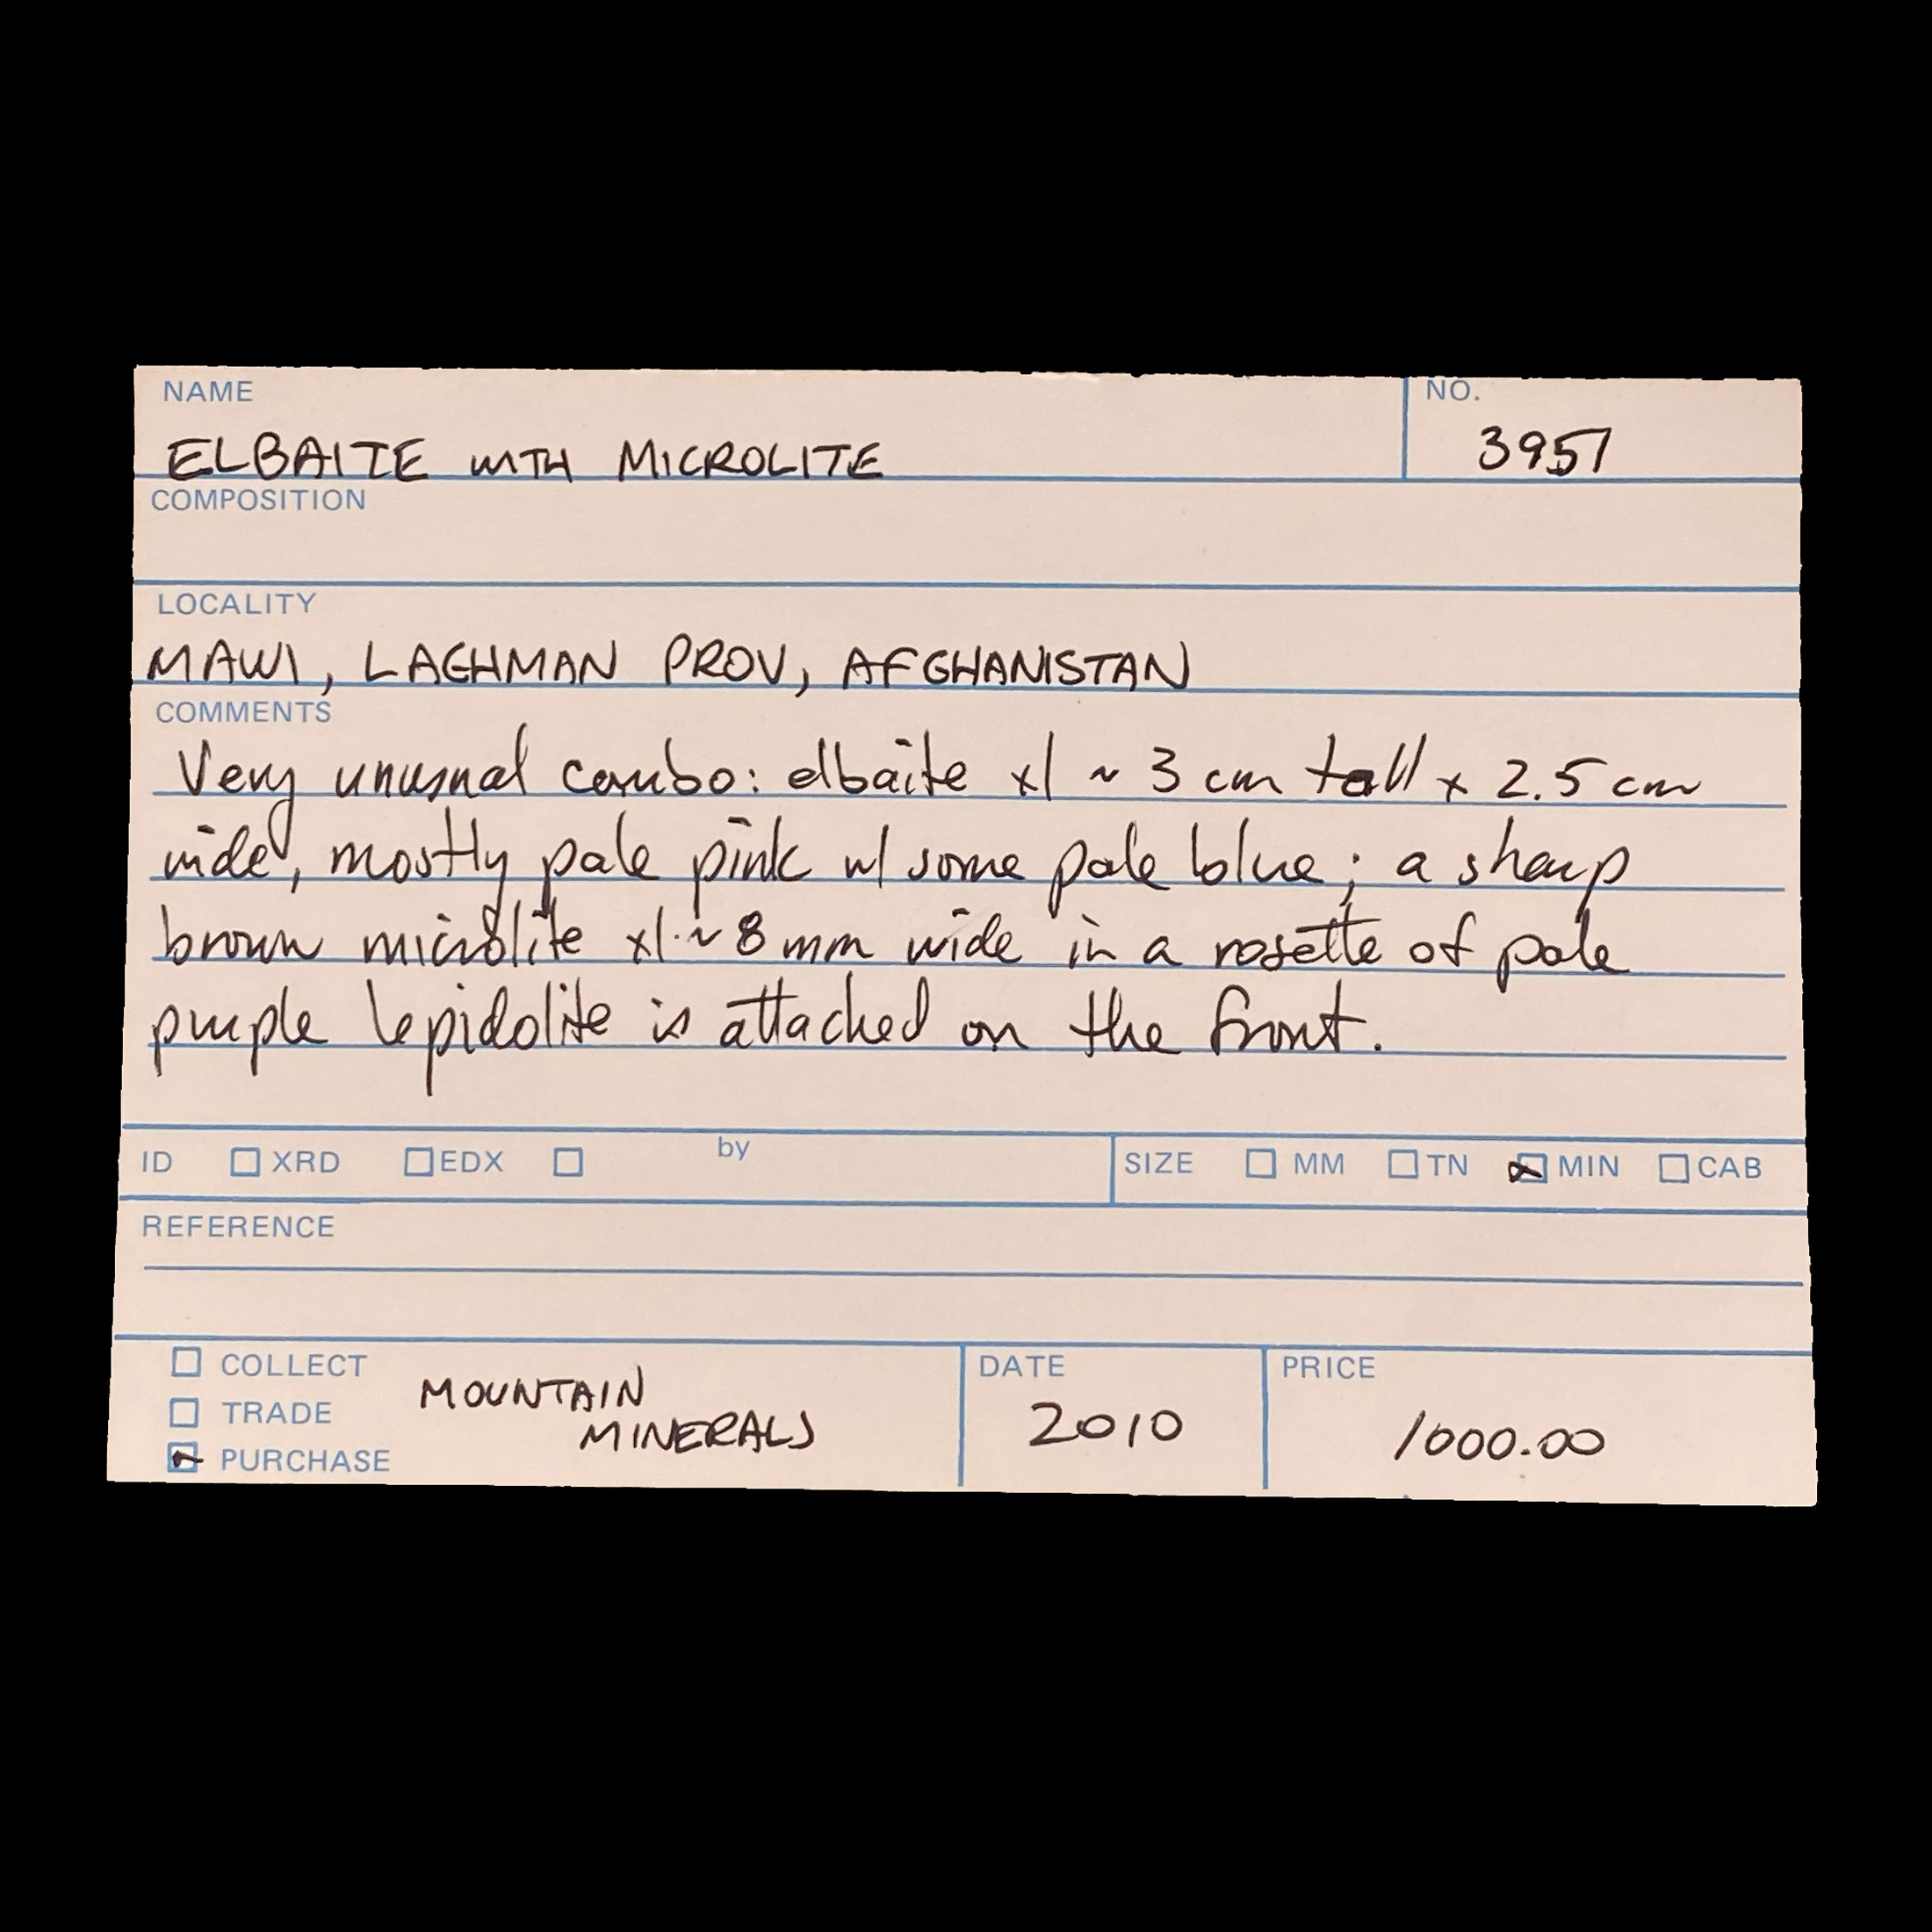 NAME NO.
ELBAITE WITH MICROLITE 3957
COMPOSITION
LOCALITY
MAWI, LAGHMAN PROV, AFGHANISTAN
COMMENTS
Very unusual combo: elbaite xl ~ 3 cm tall x 2.5 cm
wide, mostly pale pink w/ some pale blue; a sharp
brown microlite xl ~ 8 mm wide in a rosette of pale
purple lepidolite is attached on the front.
ID XRD EDX by SIZE MM TN MIN CAB
REFERENCE
COLLECT DATE PRICE
MOUNTAIN
TRADE
MINERALS 2010 1000.00
PURCHASE